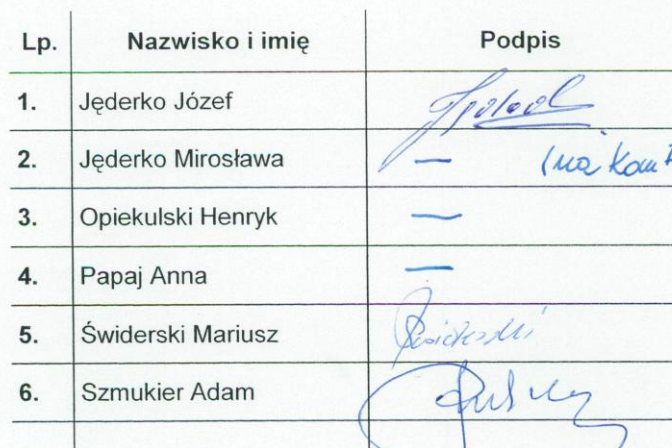 Lp. Nazwisko i imię Podpis
1. Jęderko Józef
2. Jęderko Mirosława —
3. Opiekulski Henryk —
4. Papaj Anna —
5. Świderski Mariusz
6. Szmukier Adam